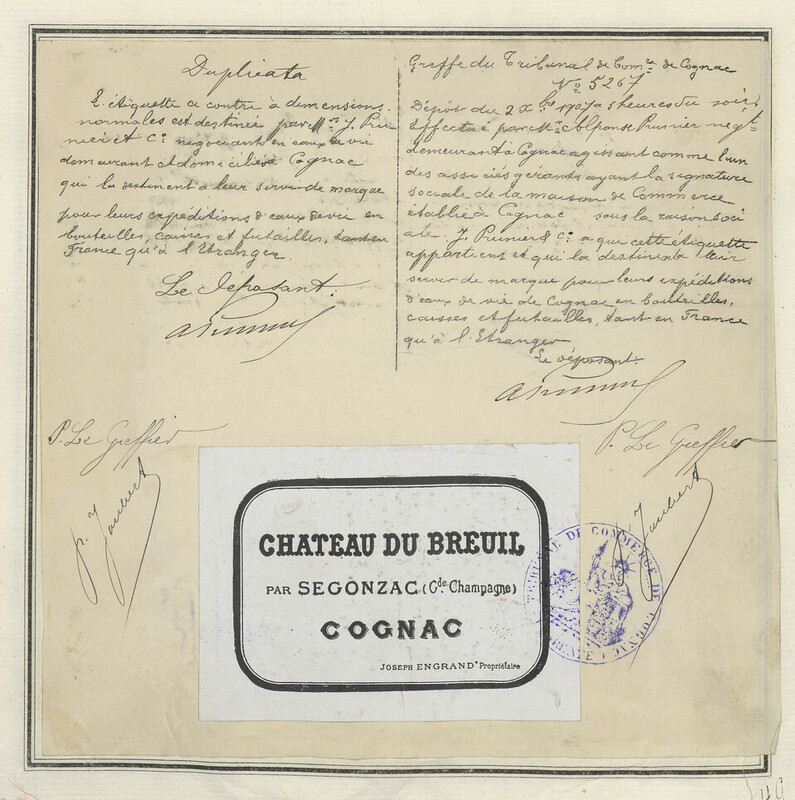 Duplicata
L'étiquette ci contre à dimensions
normales est destinée par MM. J. Pru-
nier et Cie négociants en eaux de vie
demeurant et domiciliés à Cognac
qui la destinent à leur servir de marque
pour leurs expéditions d'eaux de vie en
bouteilles, caisses et futailles, tant en
France qu'à l'Etranger.
Le déposant:
A Prunier
P. Le Greffier
Greffe du Tribunal de Comce de Cognac
No 5267
Dépôt du 2 Xbre 1907 à 5 heures du soir.
Effectué par Mr Alphonse Prunier négt
demeurant à Cognac agissant comme l'un
des associés gérants ayant la signature
sociale de la maison de Commerce
établie à Cognac sous la raison soci
ale. J. Prunier & Cie a que cette étiquette
appartient et qui la destine à leur
servir de marque pour leurs expéditions
d'eaux de vie de Cognac en bouteilles,
caisses et futailles, tant en France
qu'à l'Etranger
Le déposant.
A Prunier
P. Le Greffier
CHATEAU DU BREUIL
PAR SEGONZAC (Gde Champagne)
COGNAC
JOSEPH ENGRAND, Propriétaire
TRIBUNAL DE COMMERCE DE COGNAC (CHARENTE)